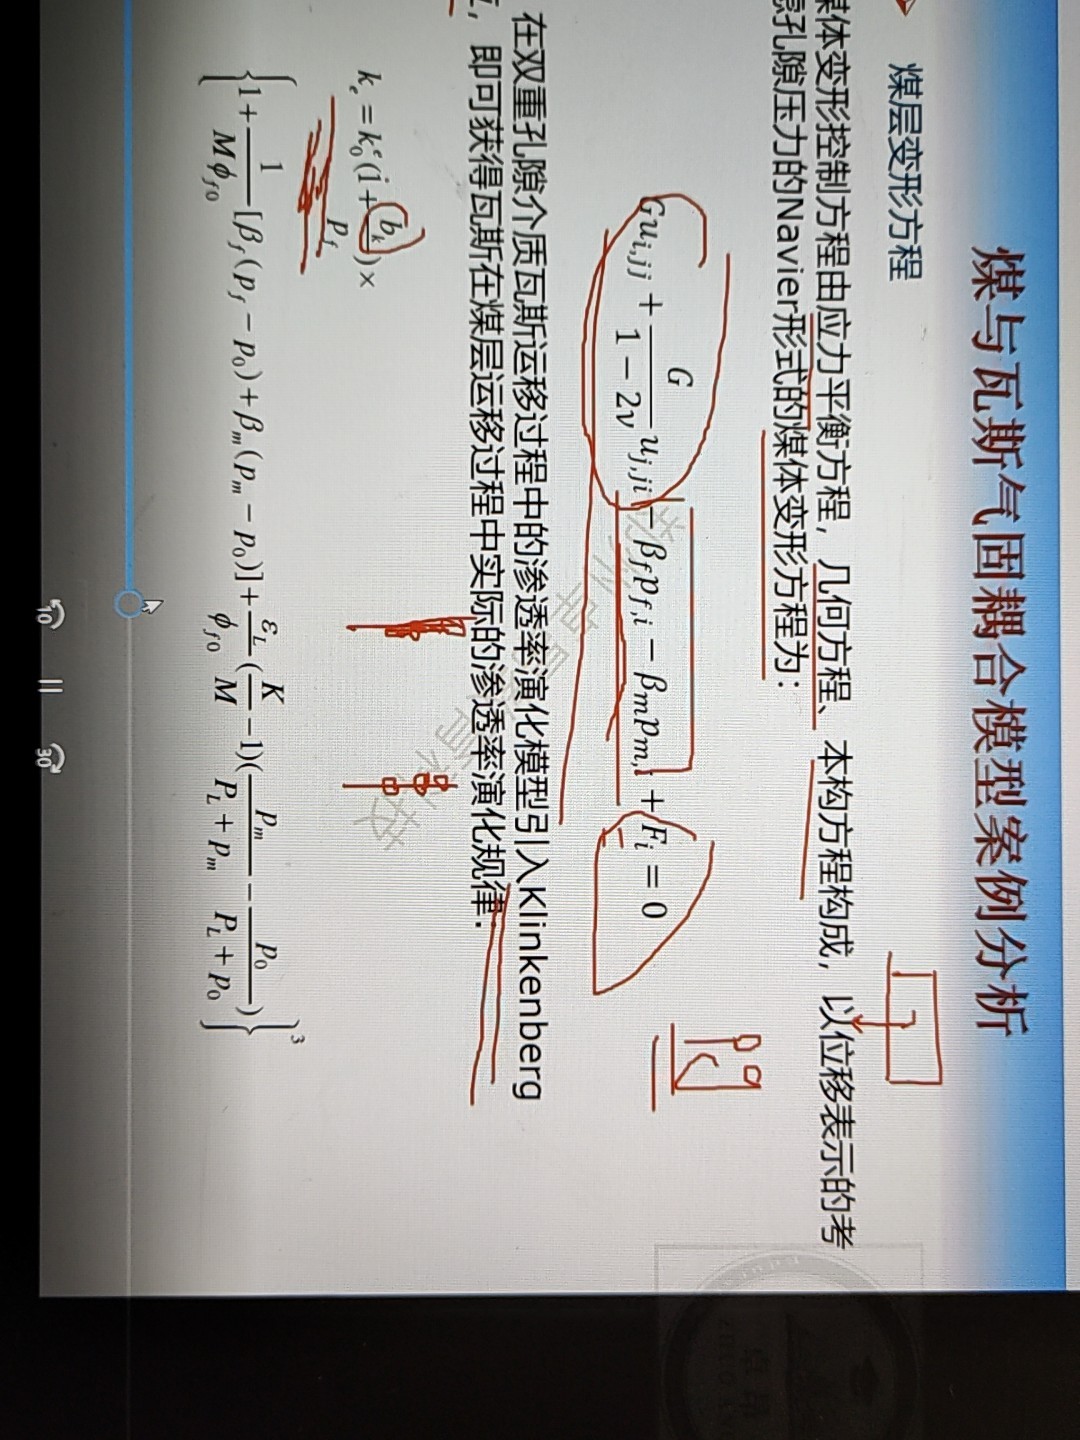 煤与瓦斯气固耦合模型案例分析
煤层变形方程
体变形控制方程由应力平衡方程，几何方程、本构方程构成，以位移表示的考
孔隙压力的Navier形式的煤体变形方程为：
Gu_{i,jj} + \frac{G}{1-2ν}u_{j,ji} - β_f p_{f,i} - β_m p_{m,i} + F_i = 0
在双重孔隙介质瓦斯运移过程中的渗透率演化模型引入Klinkenberg
，即可获得瓦斯在煤层运移过程中实际的渗透率演化规律.
k_e = k_0^e(1+\frac{b_k}{p_f})×
{1+\frac{1}{Mϕ_{f0}}[β_f(p_f-p_0)+β_m(p_m-p_0)]+\frac{ε_L}{ϕ_{f0}}(\frac{K}{M}-1)(\frac{p_m}{P_L+p_m}-\frac{p_0}{P_L+p_0})}^3
10
30